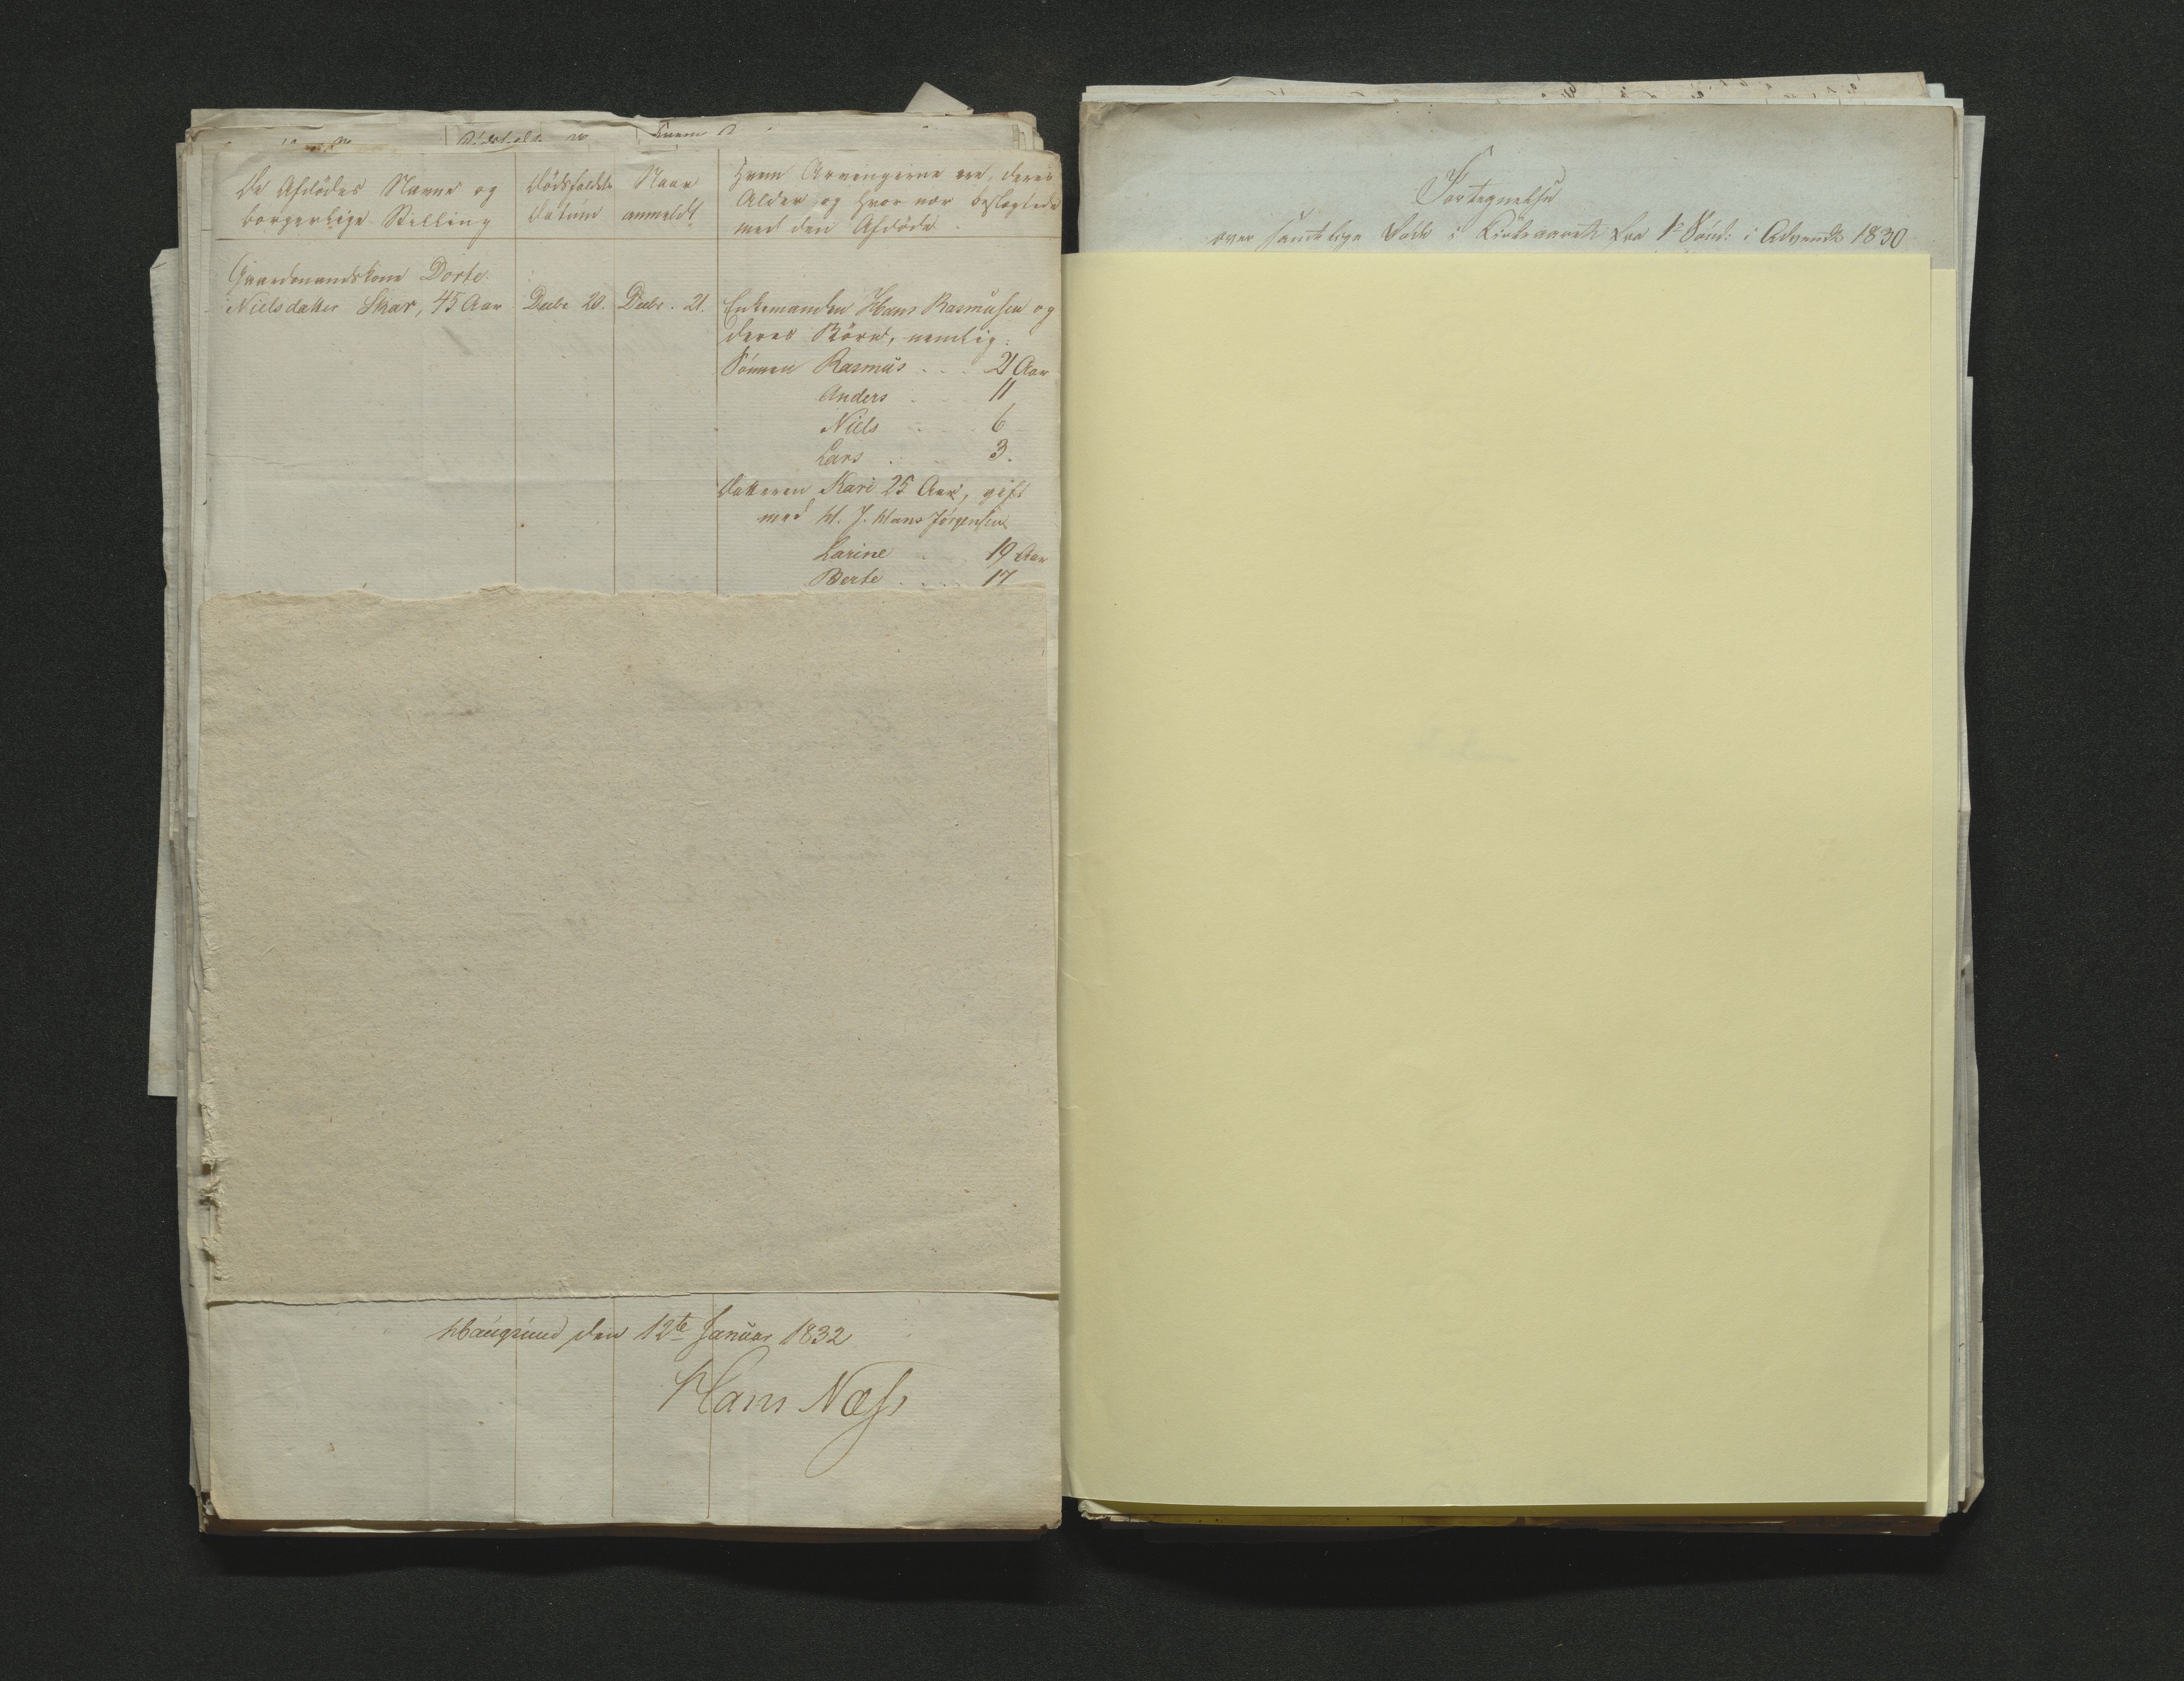 De Afdödes Navne og
borgerlige Stilling
Dödsfaldets
Datum
Naar
anmeldt
Hvem Arvingerne ere, deres
Alder og hvor nær beslægtede
med den Afdöde.
Gaardmandskone Dorte
Nielsdatter Skar, 45 Aar
Decbr 20.
Decbr. 21.
Enkemanden Hans Rasmusen og
deres Börn, nemlig:
Sönnen Rasmus . . . 21 Aar
Anders . . 11
Niels . . . 6
Lars . . 3.
Datteren Kari 25 Aar, gift
med H. J. Hans Jörgensen
Larine . . 19 Aar
Berte . . . . 17
Haugsund den 12te Januar 1832
Hans Næss
Fortegnelse
over samtlige Döde i Kirkeaaret fra 1e Sönd: i Advent 1830